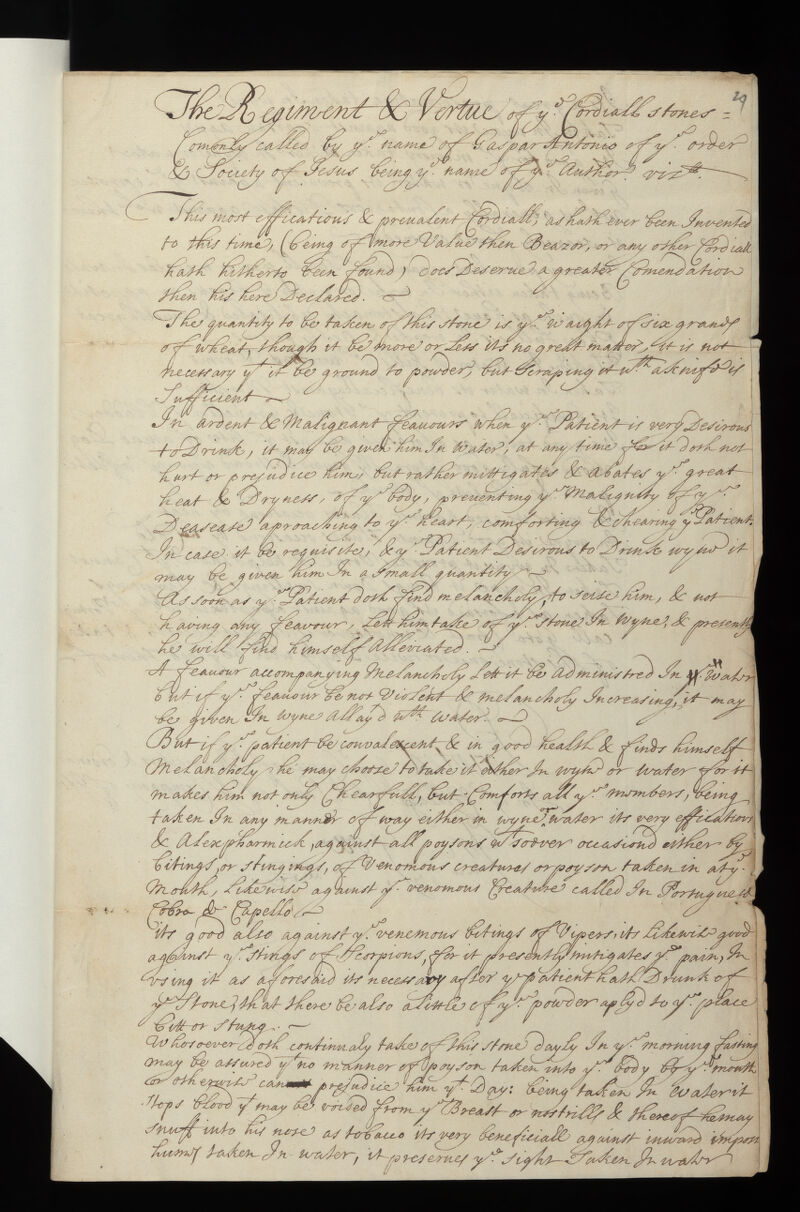 29
The Regiment & Vertue of ye Cordiall stones =
Comonly called by ye name of Gaspar Antonio of ye order
& Society of Jesus being ye name of ye Author. vizt.
This most efficatious & prevalent Cordiall, as hath ever been Invented
to this time, (being of more Value then Beazor, or any other Cordiall
hath hitherto been found) does Deserve a greater Comendation
then his here Declared.
The quantity to be taken of this stone is ye waight of six grand
of wheat, though it be more or Less its no great matter, it is not
necessary yt it be ground to powder, but scraping it wth a knife is
Sufficient
In ardent & Malignant feavours when ye Patient is very Desirous
to Drink, it may be given him In water, at any time for it doth not
hurt or prejudice him, but rather mittigates & abates ye great
heat & Dryness, of ye body, preventing ye Malignity of ye
Deasease aproaching to ye heart, comforting & chearing ye Patient.
In case it be requisite, & ye Patient Desirous to Drink wyne it
may be given him In a small quantity
As soon as ye Patient doth find melancholy, to seise him, & not
having any feavour, Lett him take of ye stone In wyne, & presently
he will find himself Alleviated.
A feavour accompanying Melancholy Lett it be administred In water
but if ye feavour be not Violent & melancholy Increasing, it may
be given In wyne Allay'd wth water.
But if ye patient be convalescent & in good health & finds himself
Melancholy he may choose to take it either In wyne or water for it
makes him not only Chearfull, but Comforts all ye members, being
taken In any manner of way either in wyne or water its very efficatious
& Alexpharmick, against all poysons wtsoever occasiond either by
bitings, or stingings, of Venomous creatures or poyson taken in at ye
Mouth, Likewise against ye venomous Creature called In Portuguese
Cobra de Capello
its good also against ye venemous bitings of Vipers, its Likewise good
against ye stings of Scorpions, for it presently mitigates ye pain, In
vsing it as aforesaid its necessary after ye patient hath Drunk of
ye Stone, that there be also a Little of ye powder aplyd to ye place
bitt or stung.
Whosoever doth continualy take of this stone dayly In ye morning fasting
may be assured yt no manner of poyson taken into ye body by ye mouth
or otherwise can prejudice him yt Day: being taken In water it
stops blood yt may be voided from ye Breast or nostrills & thereof he may
snuff into his nose as tobacco its very beneficiall against inward impos
humes taken In water, it preserves ye sight Taken In water